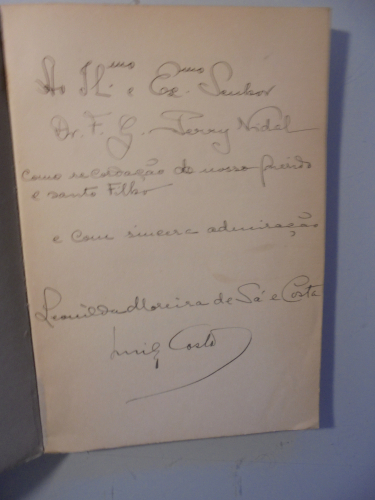 Ao Il.mo e Ex.mo Senhor
Dr. F. G. Perry Vidal
como recordação do nosso querido
e santo Filho
e com sincera admiração
Leonilda Moreira de Sá e Costa
Luiz Costa